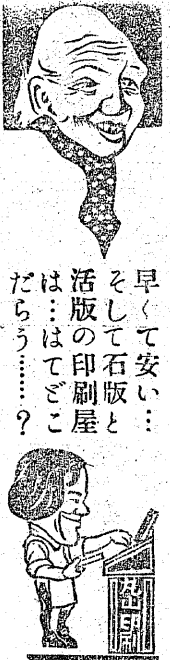 早くて安い…
そして石版と
活版の印刷屋
は…はてどこ
だらう……？
丸山印刷